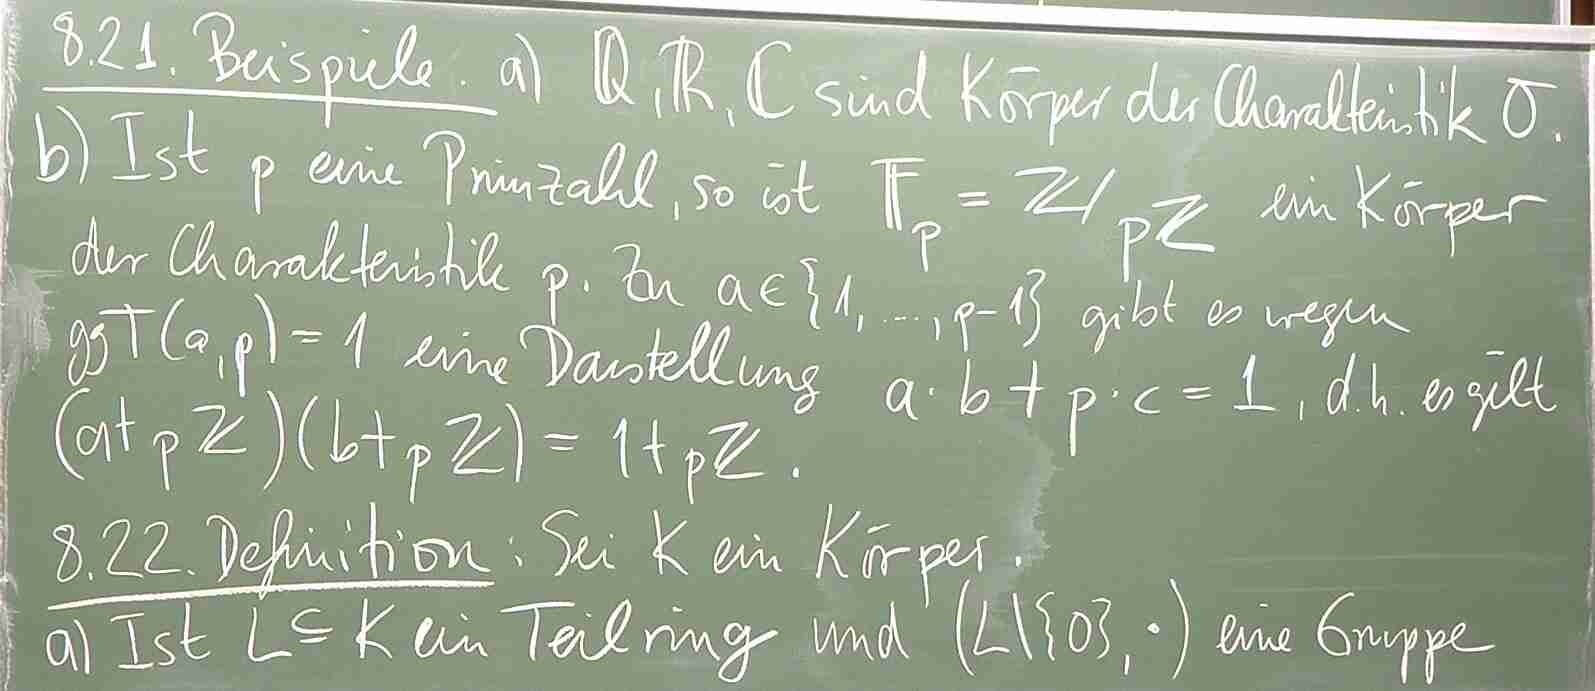 8.21. Beispiele. a) ℚ, ℝ, ℂ sind Körper der Charakteristik 0.
b) Ist p eine Primzahl, so ist 𝔽_p = ℤ/pℤ ein Körper
der Charakteristik p. Zu a ∈ {1, ..., p-1} gibt es wegen
ggT(a,p) = 1 eine Darstellung a·b + p·c = 1, d.h. es gilt
(a+pℤ)(b+pℤ) = 1+pℤ.
8.22. Definition: Sei K ein Körper.
a) Ist L ⊆ K ein Teilring und (L\{0}, ·) eine Gruppe